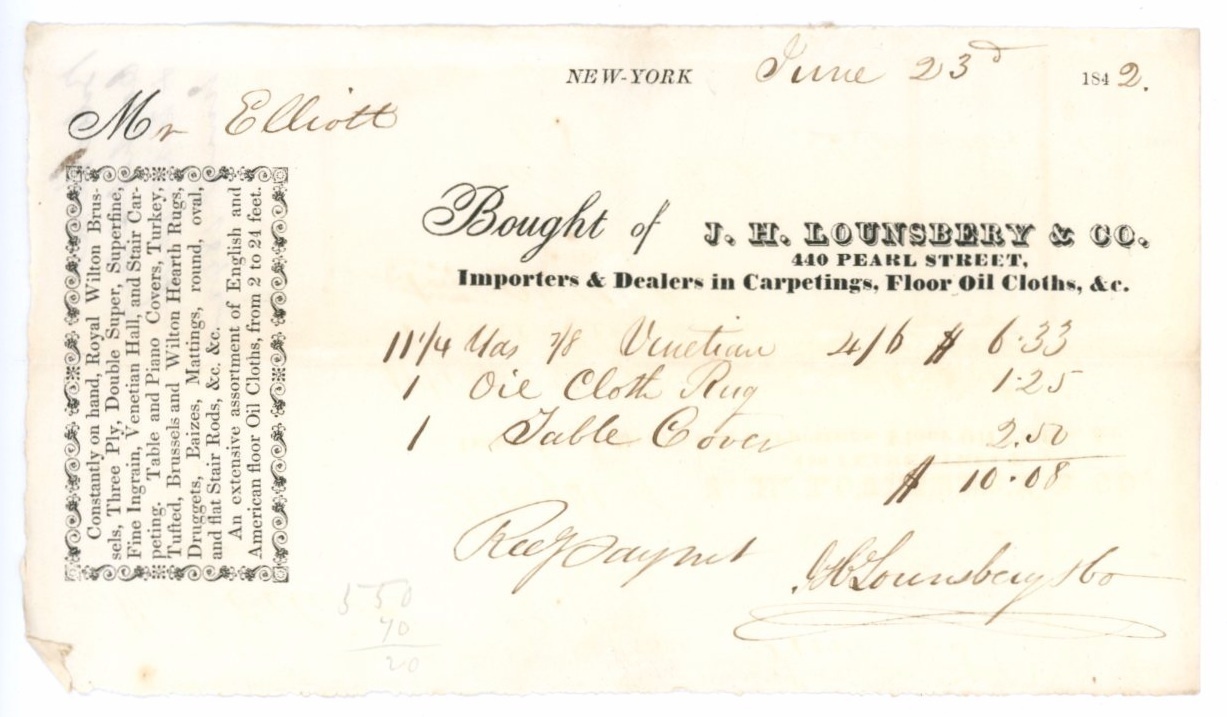 NEW-YORK June 23d 1842.
Mr Elliott
Bought of J. H. LOUNSBERY & CO.
440 PEARL STREET,
Importers & Dealers in Carpetings, Floor Oil Cloths, &c.
11 1/4 Yds 7/8 Venetian 4/6 $ 6.33
1 Oil Cloth Rug 1.25
1 Table Cover 2.50
$ 10.08
Recd Paymt
J H Lounsbery & Co
Constantly on hand, Royal Wilton Brus-
sels, Three Ply, Double Super, Superfine,
Fine Ingrain, Venetian Hall, and Stair Car-
peting. Table and Piano Covers, Turkey,
Tufted, Brussels and Wilton Hearth Rugs,
Druggets, Baizes, Mattings, round, oval,
and flat Stair Rods, &c. &c.
An extensive assortment of English and
American floor Oil Cloths, from 2 to 24 feet.
550
70
20